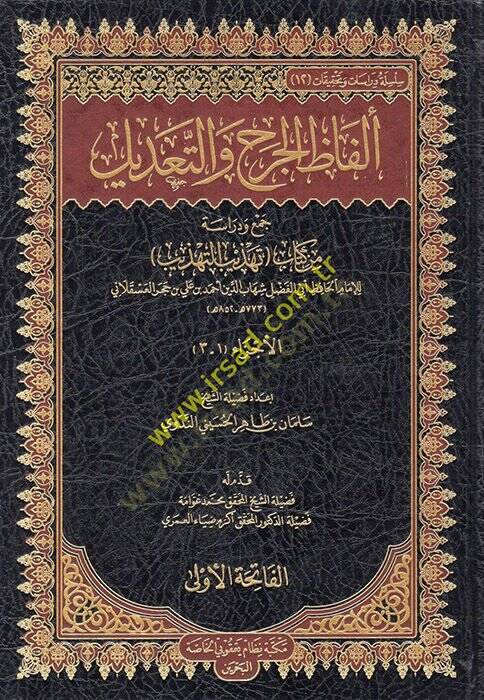 سلسلة دراسات وتحقيقات (١٢)
ألفاظ الجرح والتعديل
جمع ودراسة
من كتاب (تهذيب التهذيب)
للإمام الحافظ أبي الفضل شهاب الدين أحمد بن علي بن حجر العسقلاني
(٧٧٣هـ - ٨٥٢هـ)
الأجزاء (١ - ٣)
إعداد فضيلة الشيخ
سلمان بن طاهر الحسيني الندوي
قدم له
فضيلة الشيخ المحقق محمد عوامة
فضيلة الدكتور المحقق أكرم ضياء العمري
الفاتحة الأولى
مكتبة نظام يعقوبي الخاصة
البحرين
www.irsad.com.tr